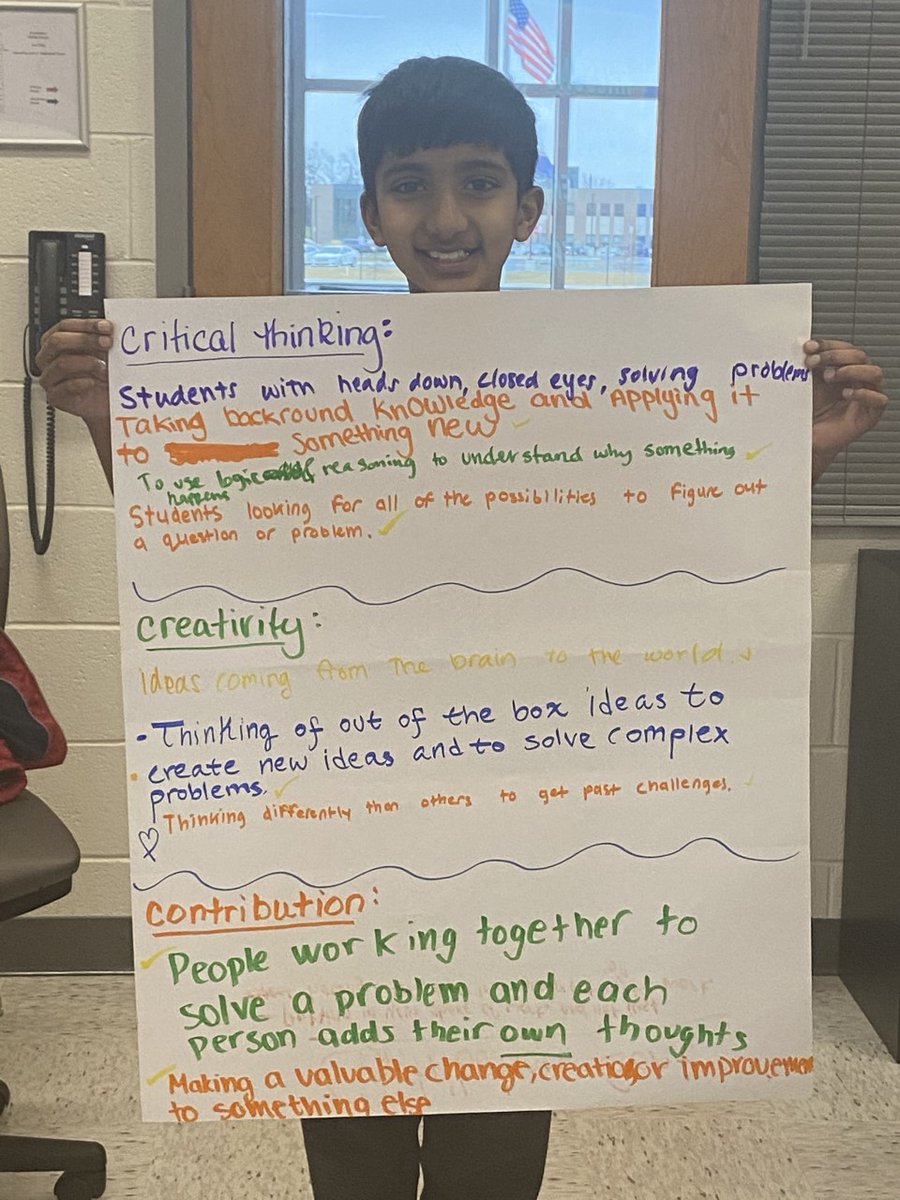 Critical thinking:
Students with heads down, closed eyes, solving problems
Taking backround knowledge and Applying it
to something new
To use logic reasoning to understand why something
happens
Students looking for all of the possibilities to figure out
a question or problem.
Creativity:
Ideas coming from The brain to the world.
• Thinking of out of the box ideas to
• create new ideas and to solve complex
problems.
Thinking differently than others to get past challenges.
Contribution:
People working together to
solve a problem and each
person adds their own thoughts
Making a valuable change, creation, or improvement
to something else